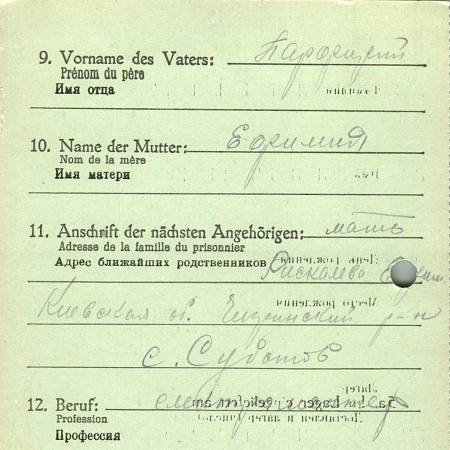 9. Vorname des Vaters:
Prénom du père
Имя отца
10. Name der Mutter: Ефимия
Nom de la mère
Имя матери
11. Anschrift der nächsten Angehörigen: мать
Adresse de la famille du prisonnier
Адрес ближайших родственников
Киевская об. р-н
с. Суботов
12. Beruf:
Profession
Профессия